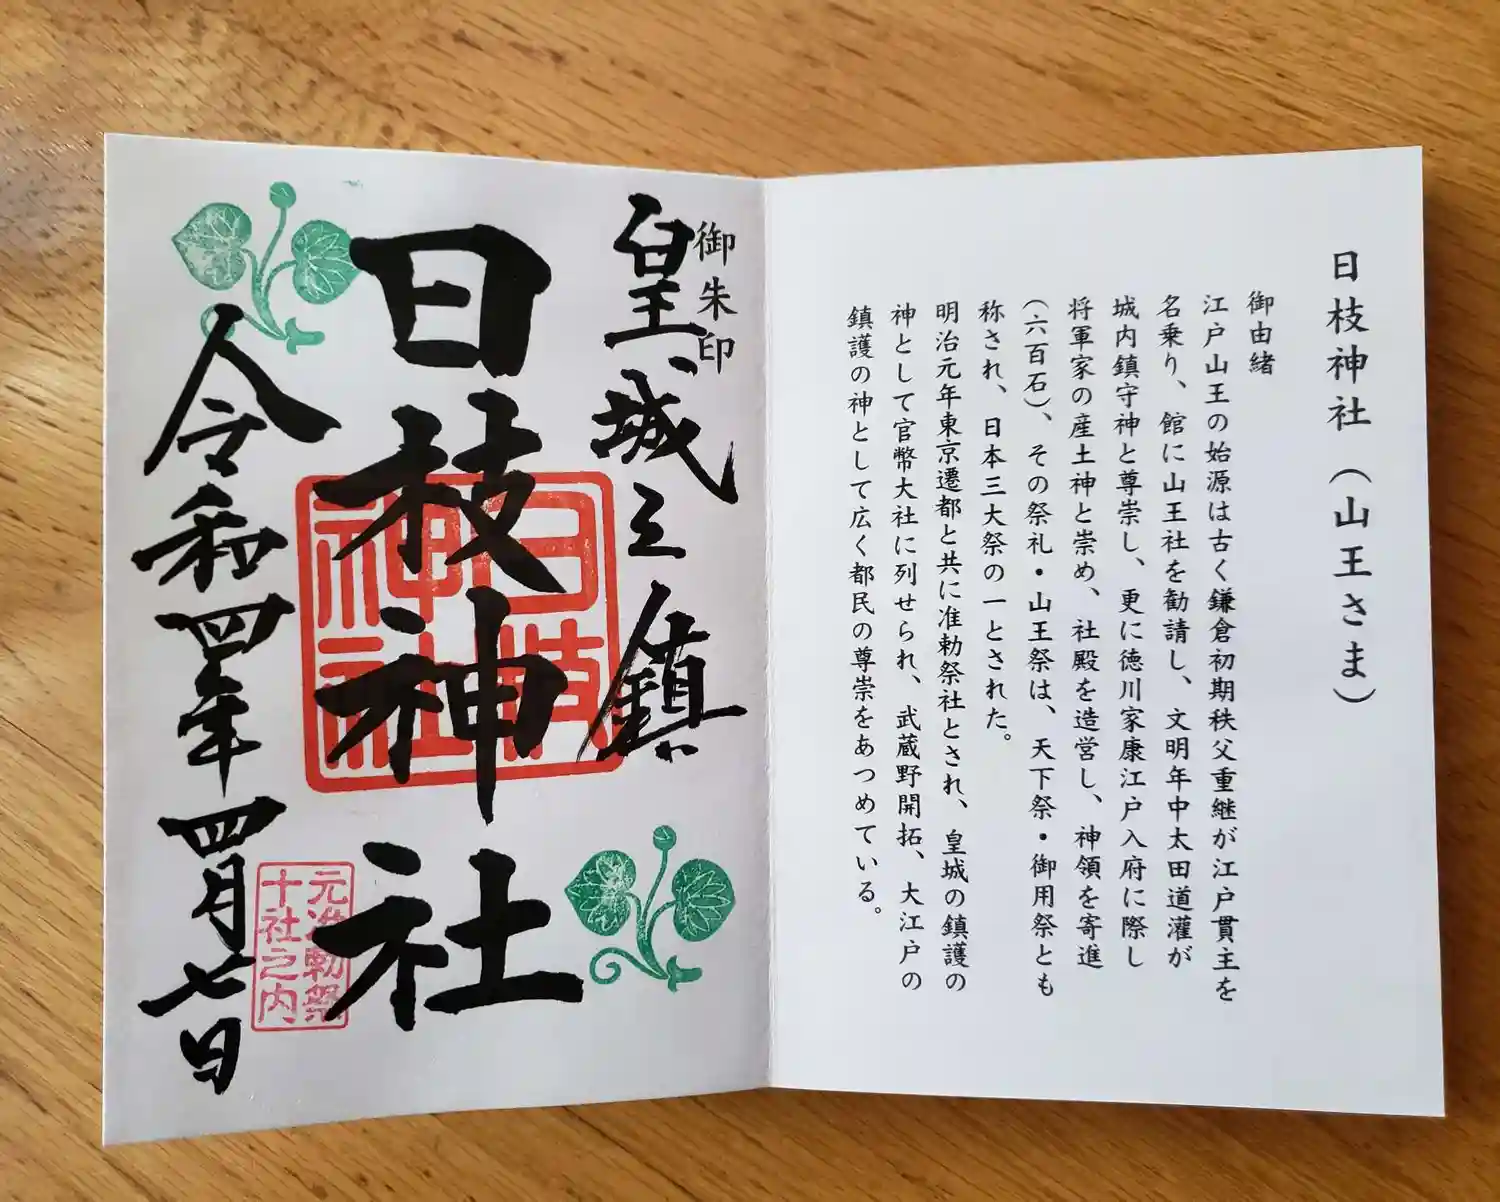 日枝神社(山王さま)
御由緒
江戸山王の始源は古く鎌倉初期秩父重継が江戸貫主を
名乗り、館に山王社を勧請し、文明年中太田道灌が
城内鎮守神と尊崇し、更に徳川家康江戸入府に際し
将軍家の産土神と崇め、社殿を造営し、神領を寄進
(六百石)、その祭礼・山王祭は、天下祭・御用祭とも
称され、日本三大祭の一とされた。
明治元年東京遷都と共に准勅祭社とされ、皇城の鎮護の
神として官幣大社に列せられ、武蔵野開拓、大江戸の
鎮護の神として広く都民の尊崇をあつめている。
御朱印
皇城之鎮
日枝神社
日枝
神社
元准勅祭
十社之内
令和四年四月七日